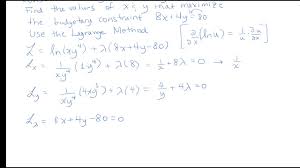 Find the values of x & y that maximize
the budgetary constraint 8x+4y=80
Use the Lagrange Method [∂/∂x (ln u) = 1/u · ∂u/∂x]
ℒ = ln(xy⁴) + λ(8x+4y-80)
ℒx = 1/xy⁴ (1y⁴) + λ(8) = 1/x + 8λ = 0 →
ℒy = 1/xy⁴ (4xy³) + λ(4) = 4/y + 4λ = 0
ℒλ = 8x+4y-80=0